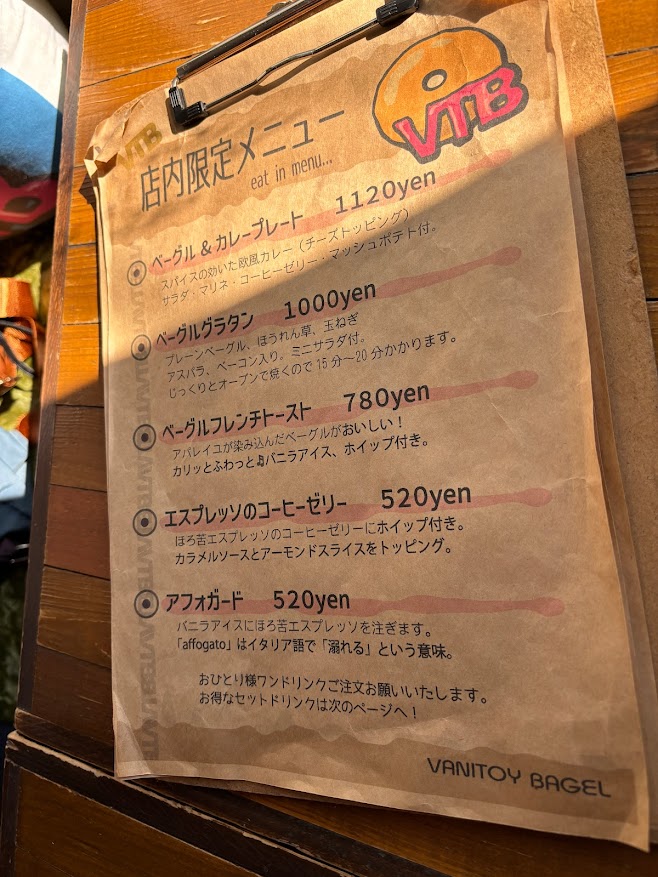 VTB
VTB
店内限定メニュー
eat in menu...
ベーグル & カレープレート 1120yen
スパイスの効いた欧風カレー（チーズトッピング）
サラダ・マリネ・コーヒーゼリー・マッシュポテト付。
ベーグルグラタン 1000yen
プレーンベーグル、ほうれん草、玉ねぎ
アスパラ、ベーコン入り。ミニサラダ付。
じっくりとオーブンで焼くので15分～20分かかります。
ベーグルフレンチトースト 780yen
アパレイユが染み込んだベーグルがおいしい！
カリッとふわっと♫バニラアイス、ホイップ付き。
エスプレッソのコーヒーゼリー 520yen
ほろ苦エスプレッソのコーヒーゼリーにホイップ付き。
カラメルソースとアーモンドスライスをトッピング。
アフォガード 520yen
バニラアイスにほろ苦エスプレッソを注ぎます。
「affogato」はイタリア語で「溺れる」という意味。
おひとり様ワンドリンクご注文お願いいたします。
お得なセットドリンクは次のページへ！
VANITOY BAGEL